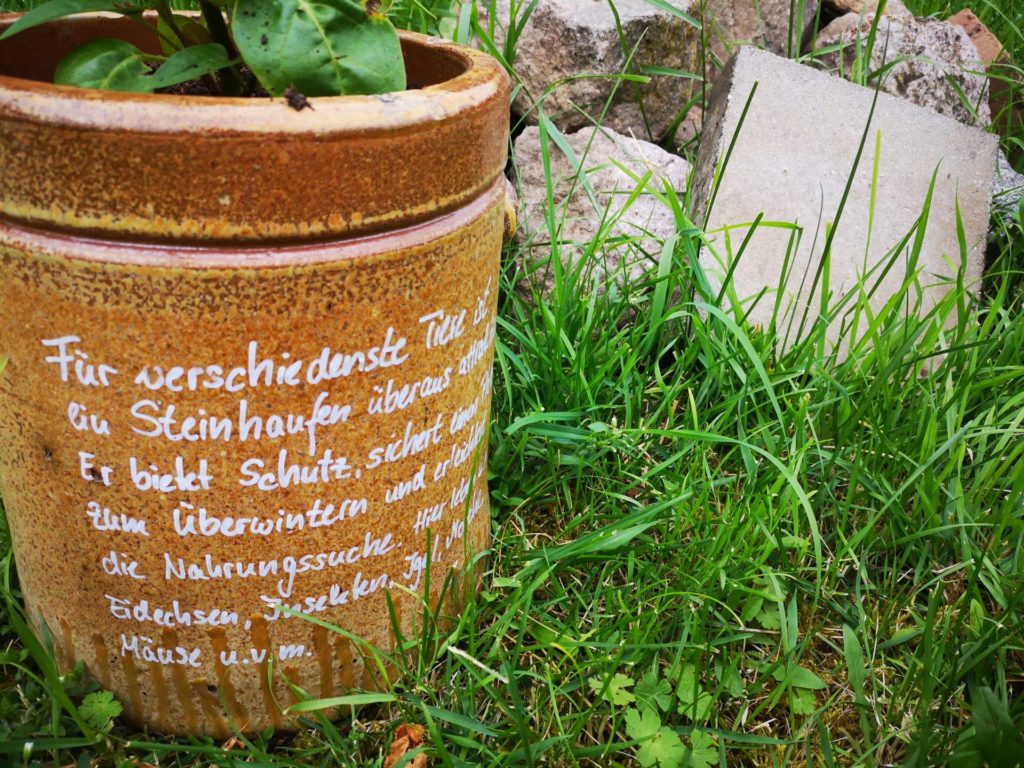 Für verschiedenste Tiere ist
ein Steinhaufen überaus
Er bietet Schutz, sichert einen
zum Überwintern und
die Nahrungssuche. Hier
Eidechsen, Insekten, Igel,
Mäuse u.v.m.